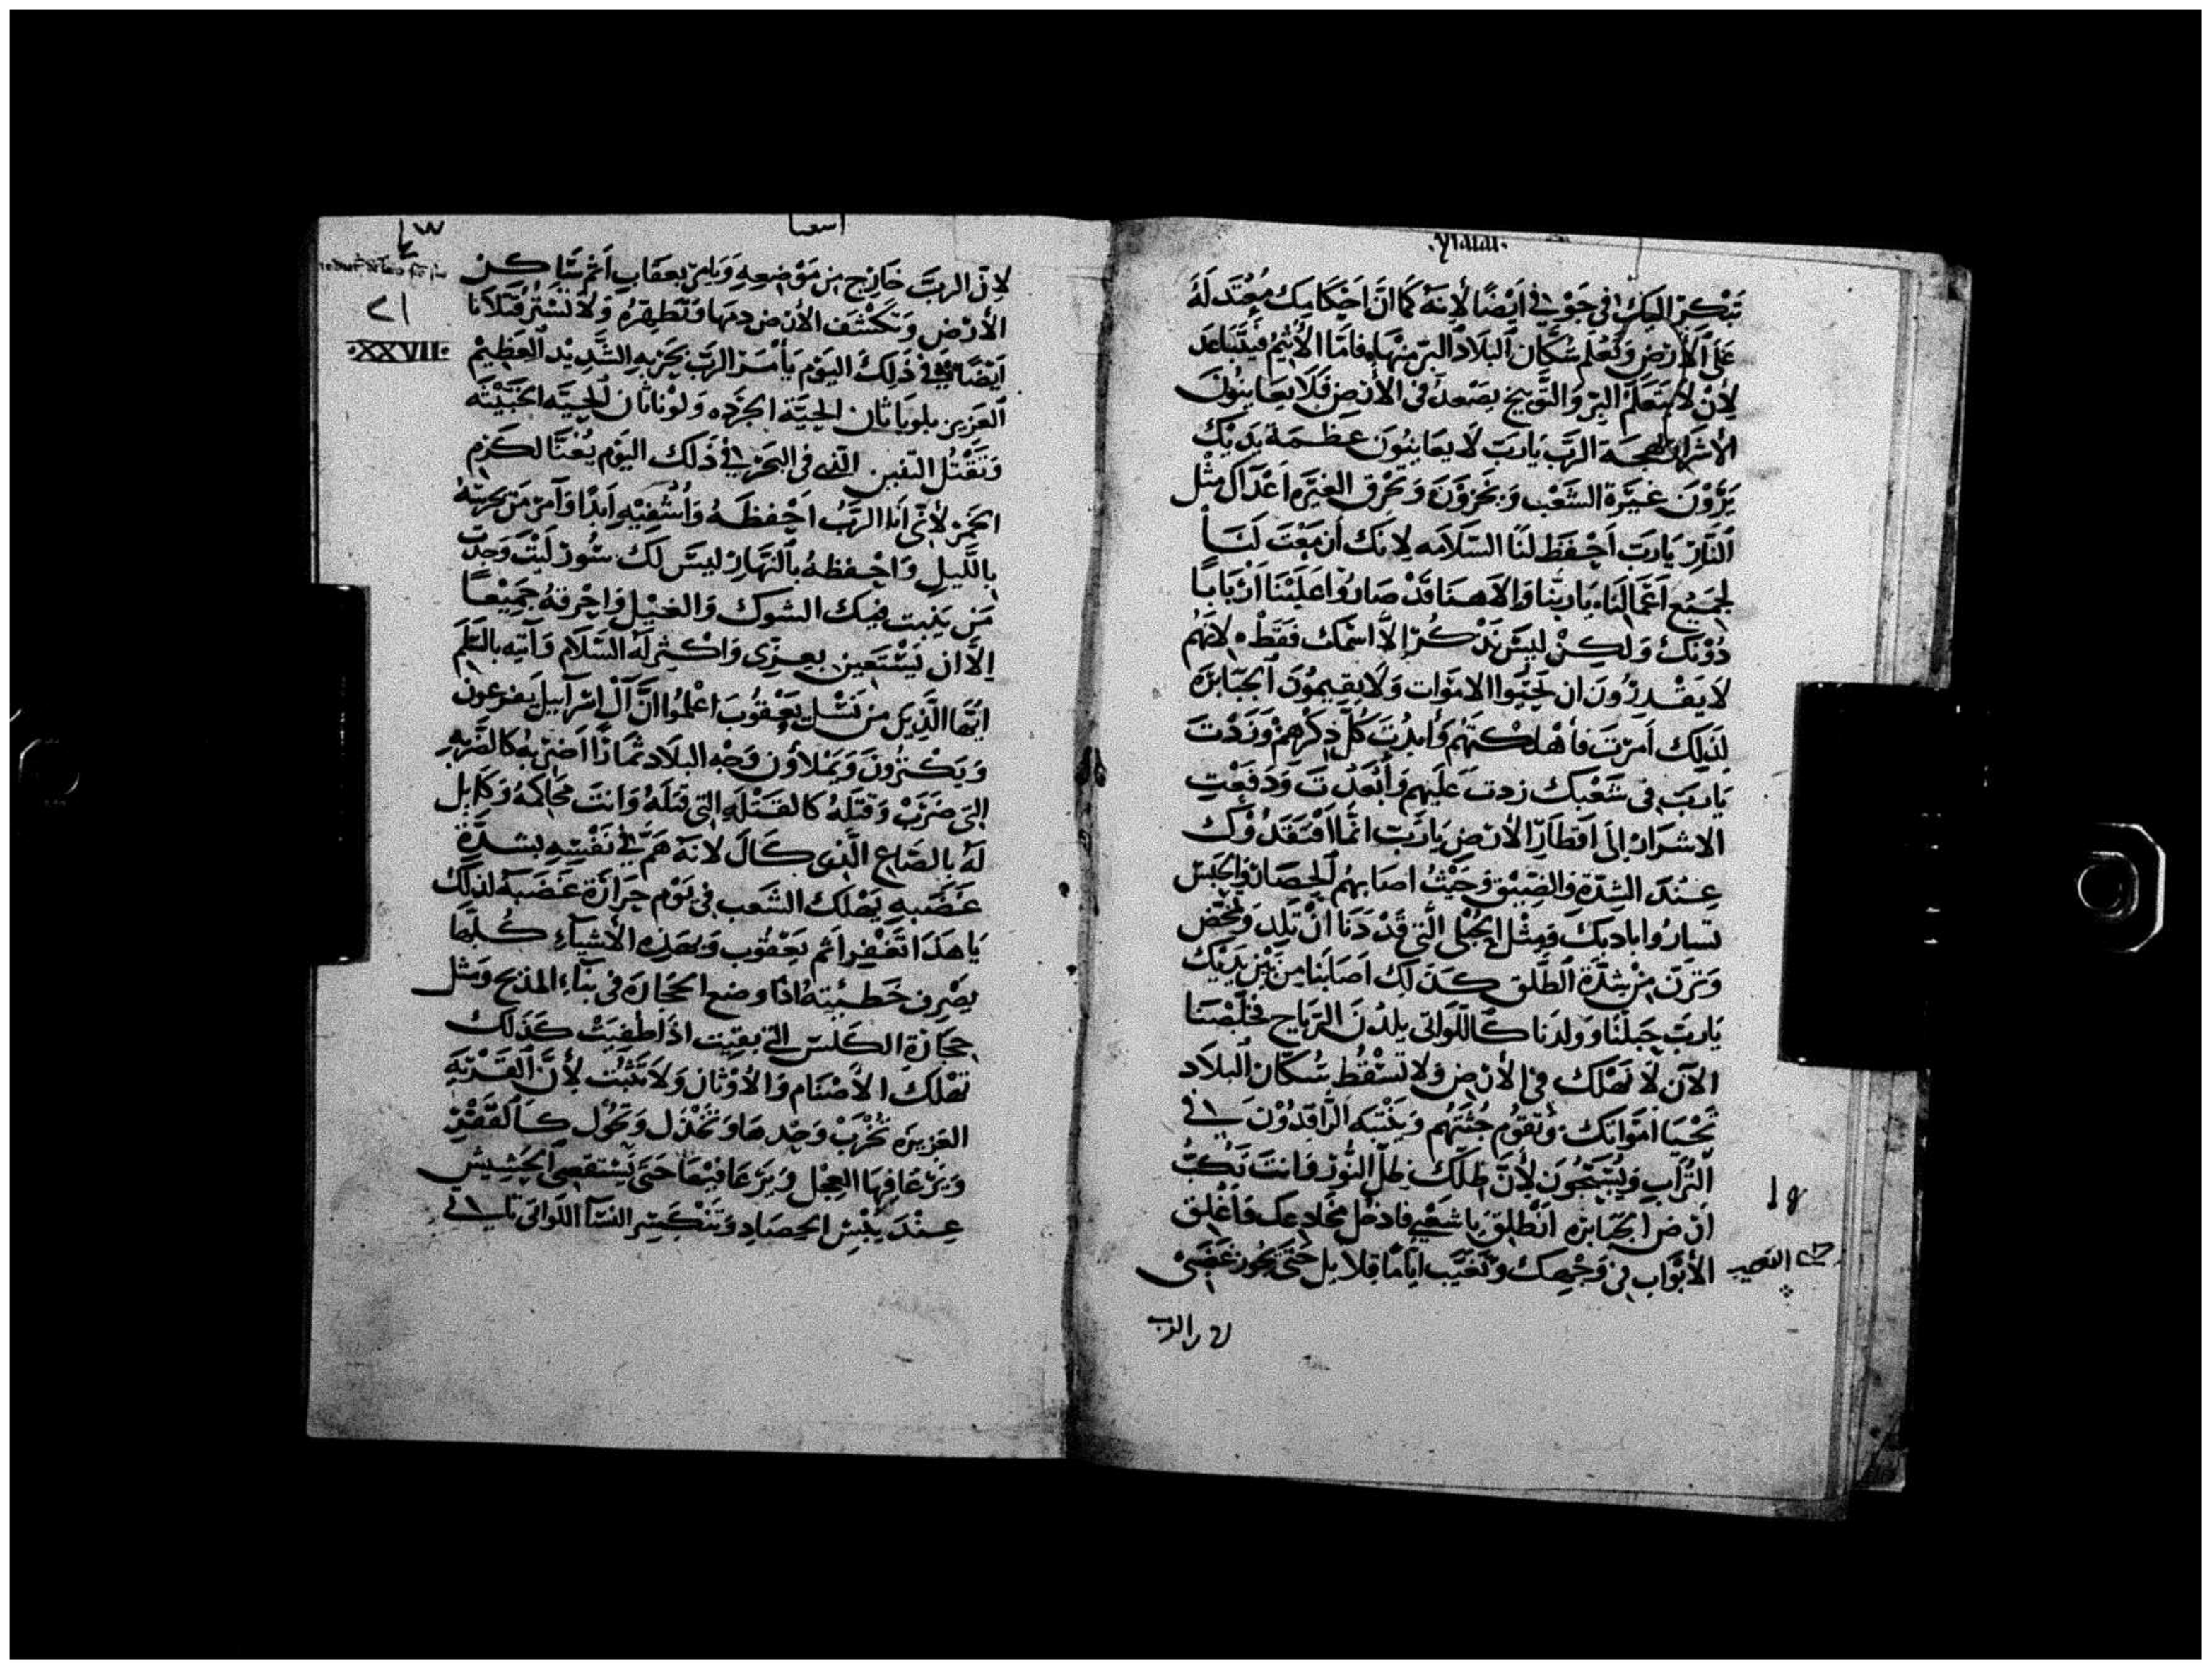 تَبْكُر اليك في جَوْفي أيْضًا لأنهُ كَما انَّ احْكَامِك مُعْتَدلَهُ
عَلى الأرْض وَتَعْلم سُكَّان البلَاد البرّ مِنْهَا، فامّا الأثيمْ فيتباعد
لِأن لا يتعَلَّمَ البرّ وَالتَّوبيخ يصْنعهُ في الأرْضِ فَلا يعَاينُونَ
الأشرار بهجة الرَّب يَارَبّ لَا يعَاينُونَ عظمَة يدَيْك
يَرَوْنَ غيْرَة الشعْب وَيخزَوْنَ وَتحْرق الغيرَه اعْدَآك مثْل
النَّار يَاربّ احْفظ لنَا السّلَامَه لِانك أنعَمْتَ لنَا
لجَميْع اعْمَالنَا، يَاربّنا وَالاهنَا قَدْ صَارُوا عَليْنَا ارْبَابًا
دُوْنكَ وَلكِنْ ليسَ نذْكُر إلّا اسْمك فقَطْ ه لِانهُم
لَا يَقْدرُونَ ان يحْيُوا الامْوَات وَلَا يقيمُونَ الجبَابرَه
لذَلِك أمَرْتَ فأهْلكْتَهُم وَأبدْتَ كلّ ذكْرهِمْ وَزدْتَ
يَاربّ في شَعْبكَ زدت عَليْهم وَأبْعَدْتَ وَدَفعْت
الاشرَار إلى اقطَار الأرض يَاربّ انّما افْتقدُوْك
عِنْدَ الشِدّة وَالضّيْق وَحَيْثُ اصَابهُم الحصَار والحبْس
وَمِثْل الحُبْلى الَّتي قَدْ دَنَا انْ تلِد وَتمخض
وَترَنّ مِنْ شِدَّة الطّلق كذلِك اصَابنَا مِنْ بَيْن يدَيْك
يَاربّ حَبِلْنَا وَوَلدنَا كاللَّوَاتي يلدْنَ الرّيَاح فخلّصْنَا
الآن لا نَهْلك في الأرْض وَلا تسْقط سُكّان البلَاد
تحْيَا أمْوَاتك وَتقوْم جُثثهُم وَينْتبه الرَّاقدُوْنَ في
التُّرَاب وَيُسَبِّحُونَ لِأنّ طلّك طلّ النُّوْر وَانتَ تكُبّ
ارْض الجبَابرَه انْطلِق يَا شعْبي فادْخل مخَادعك فأغلق
الأبْوَاب في وَجْهك وَتغيَّب ايَّامًا قلَايل حَتّى يجُوز غضَبي
١٩
الرب
اسعيا
لِانّ الربّ خَارج من مَوْضعهِ وَيَامر بعقَاب اثم سَاكن
الأرْض وَتكْشف الأرض دمهَا وَتُطْهرُهُ وَلا تسْتُر قَتْلَانَا
ايْضًا في ذَلِك اليَوْم يأمُر الرَّب بحَربهِ الشّديْد العَظيمْ
العَزيز بلويَاثان الحيّة الجرَده وَلوْيَاثان الحيّه الخبيْثه
وَتقتُل التنين الّذي في البَحر، في ذَلك اليَوْم يُغنّا لكرم
الخمْر لأنّي انا الرَّبُ احْفظهُ وَاسْقيْه ابدًا وَآمر مَن يحرسه
بالَّليل وَاحْفظهُ بالنّهَار ليْسَ لك سُور لَيْتَ وَجدْت
مَن ينبت فيك الشوك وَالغيْل وَاحْرقهُ جَميْعًا
الّا ان يَسْتعين بعزّى وَاكثر لهُ السّلَام وَآتيه بالسَّلم
ايّهَا الَّذين مِن نسْل يَعْقُوبَ اعْلمُوا انَّ آل اسْرآييل يفرعون
وَيكثرُونَ وَيَمْلأوْن وَجْه البلاد ثمَارًا اضربهُ كالضَّربه
التي ضَرَبْ وَقتلهُ كالقتله التي قتلهُ وَانتَ محَاكمهُ وَكَايل
لهُ بالصَّاع الَّذي كَالَ لانهُ هَمّ في نَفْسه بشدَّة
غضَبه يهْلك الشعَب في يَوْم حرَارَة غضَبهُ لذلك
يَا هَذا تُغفر اثم يَعْقُوب وَبهَذه الأشيَآءِ كُلّهَا
يصْرف خَطيئتهُ اذَا وضع الحجَارَه في بنَآءِ المذبح وَمثل
حجَارَة الكَلس التي بقيت اذَا طفيَتْ كَذلك
تهْلك الأصْنَام وَالأوْثان وَلا تثبُت لأنّ القَرْيَه
العَزيزَه تُخْرَبْ وَحْدهَا وَتُخْذل وَتحُوْل كَالقفْر
وَيَرْعَا فيهَا العِجْل وَيَرْعَا فيْهَا حَتّى يَسْتقصى الحَشيش
عِنْدَ يُبْس الحصَاد وَتَنْكَسر النسَآ اللّوَاتي ياتى
XXVII